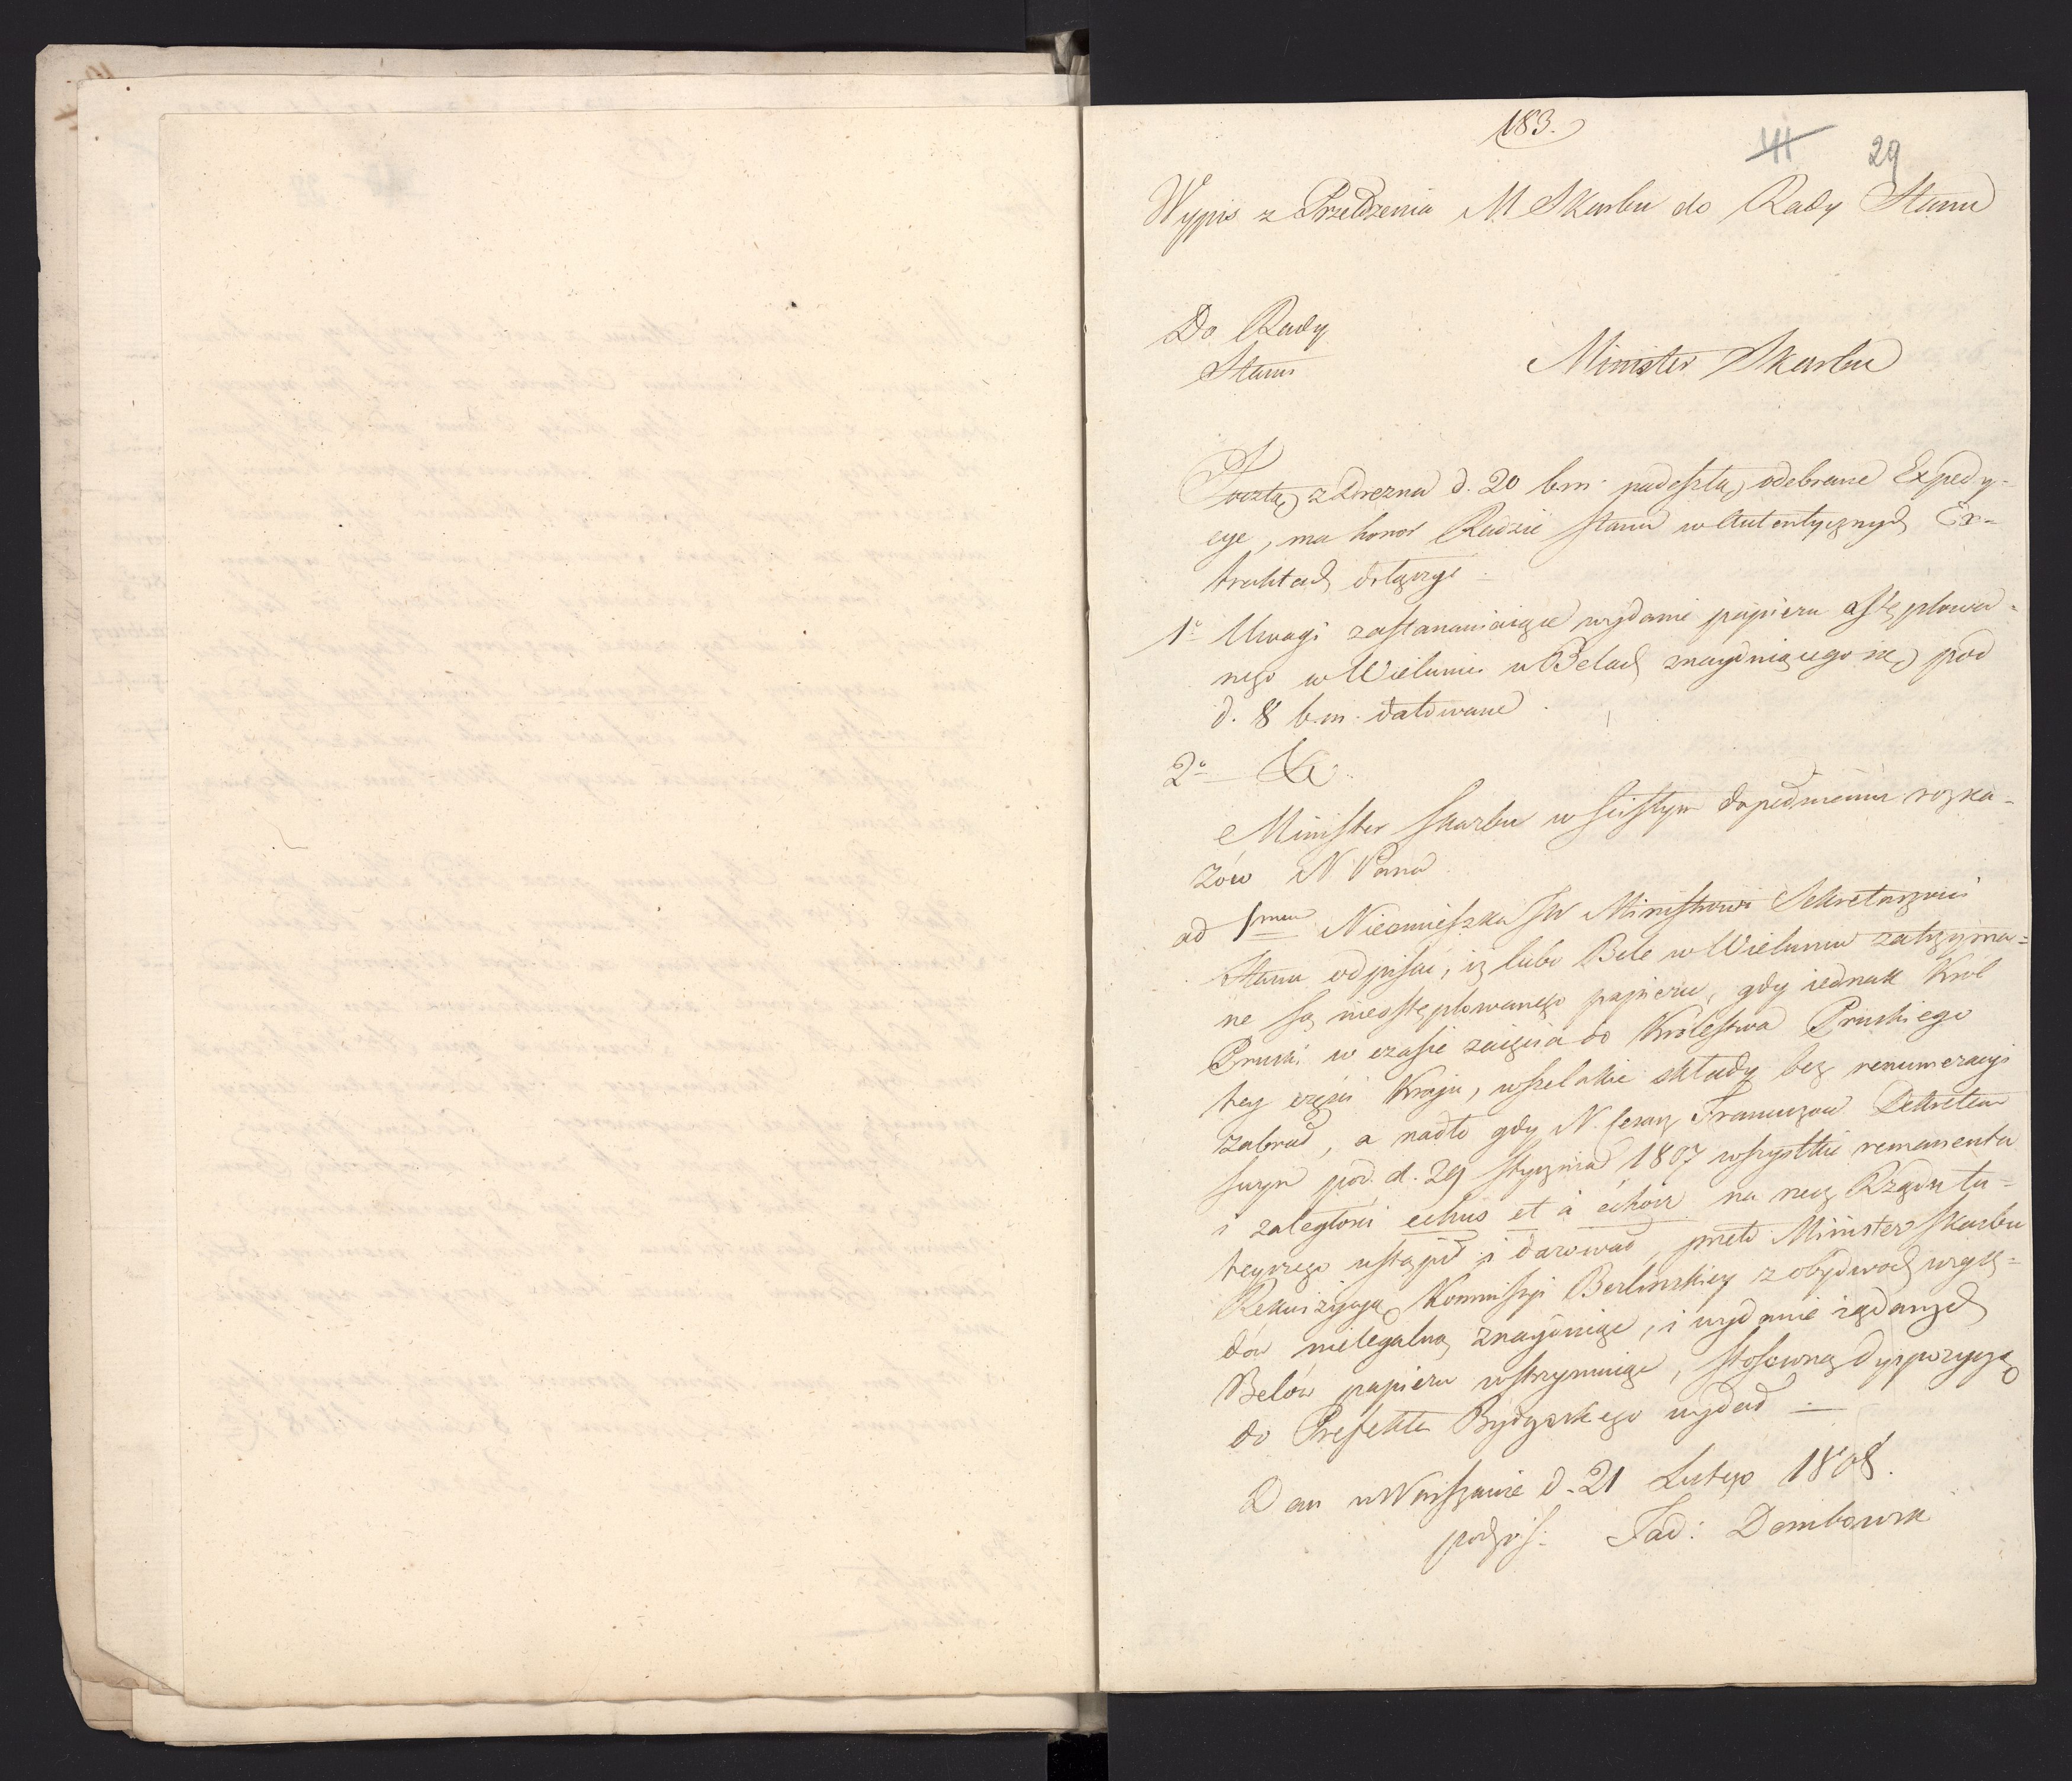 183.
141 29
Wypis z Przełożenia M Skarbu do Rady Stanu
Do Rady
Stanu
Minister Skarbu
Pocztą z Drezna d. 20 b.m. nadeszłą odebrane Expedy-
cye, ma honor Radzie Stanu w Autentycznych Ex-
traktach dołączyć:
1o Uwagi zastanawiaiące wydanie papieru ostęplowa-
nego w Wieluniu w Belach znayduiącego się pod
d. 8 b.m. datowane.
2o &c.
Minister Skarbu w ścisłym dopełnieniu rozka-
zów N Pana
ad 1mum Nieomieszka JW Ministrowi Sekretarzowi
Stanu odpisać, iż lubo Bele w Wieluniu zatrzyma-
ne są nieostęplowanego papieru, gdy iednak Krol
Pruski w czasie zaięcia do Królestwa Pruskiego
tey części Kraju, wszelakie składy bez renumeracyi
zabrał, a nadto gdy N. Cesarz Francuzow Dekretem
swym pod d. 29 Stycznia 1807 wszystkie remanenta
i zaległości echus et à échoir na rzecz Rządu tu-
teyszego ustąpił i darował, przeto Minister Skarbu
Rekwizycyą Kommissyi Berlinskiey z obydwoch wzglę-
dów nielegalną znayduiąc, i wydanie żądanych
Belów papieru wstrzymuiąc, stosowną dyspozycyą
do Prefekta Bydgoskiego wydał.
Dan w Warszawie d. 21 Lutego 1808.
podpis: Tad: Dembowski